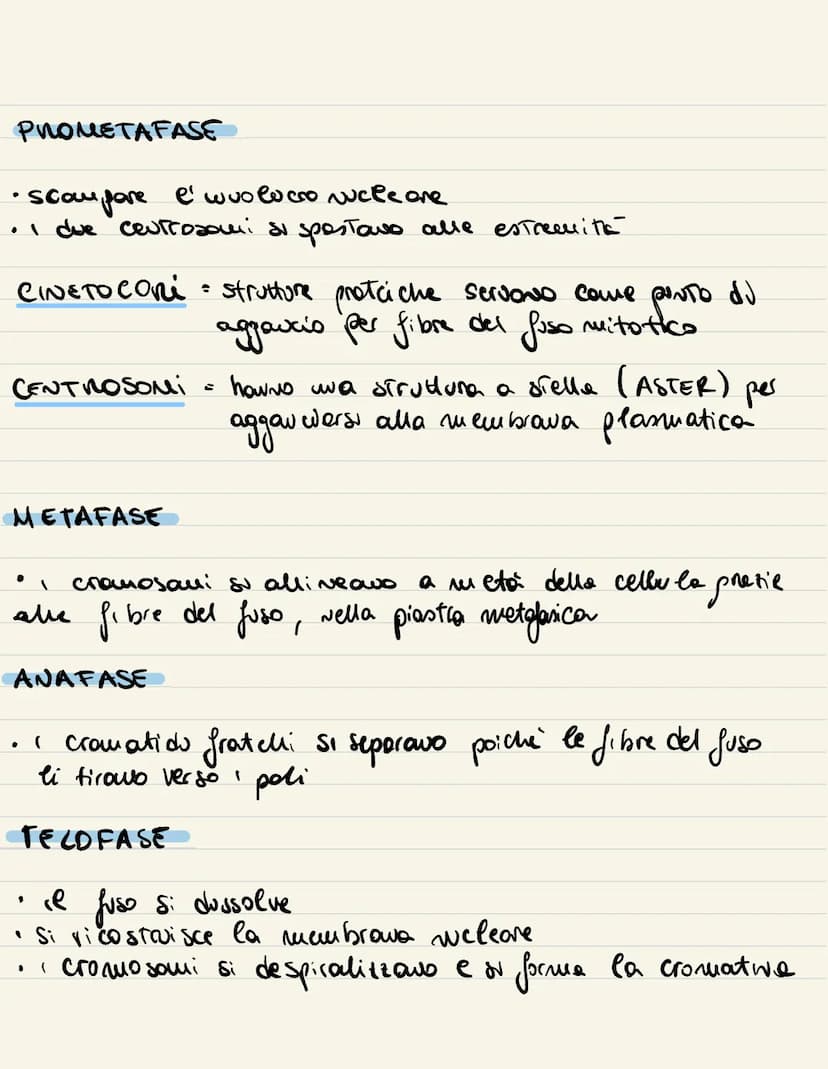 PROMETAFASE
• scompare l'involucro nucleare
• i due centrosomi si spostano alle estremità
CINETOCORI = strutture proteiche servono come punto di
aggancio per fibre del fuso mitotico
CENTROSOMI = hanno una struttura a stella (ASTER) per
agganciarsi alla membrana plasmatica
METAFASE
• i cromosomi si allineano a metà della cellula grazie
alle fibre del fuso, nella piastra metafasica
ANAFASE
• i cromatidi fratelli si separano poiché le fibre del fuso
li tirano verso i poli
TELOFASE
• il fuso si dissolve
• Si ricostruisce la membrana nucleare
• i cromosomi si despiralizzano e si forma la cromatina